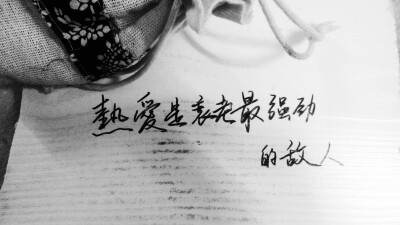 熱愛是衰老最强劲
的敌人